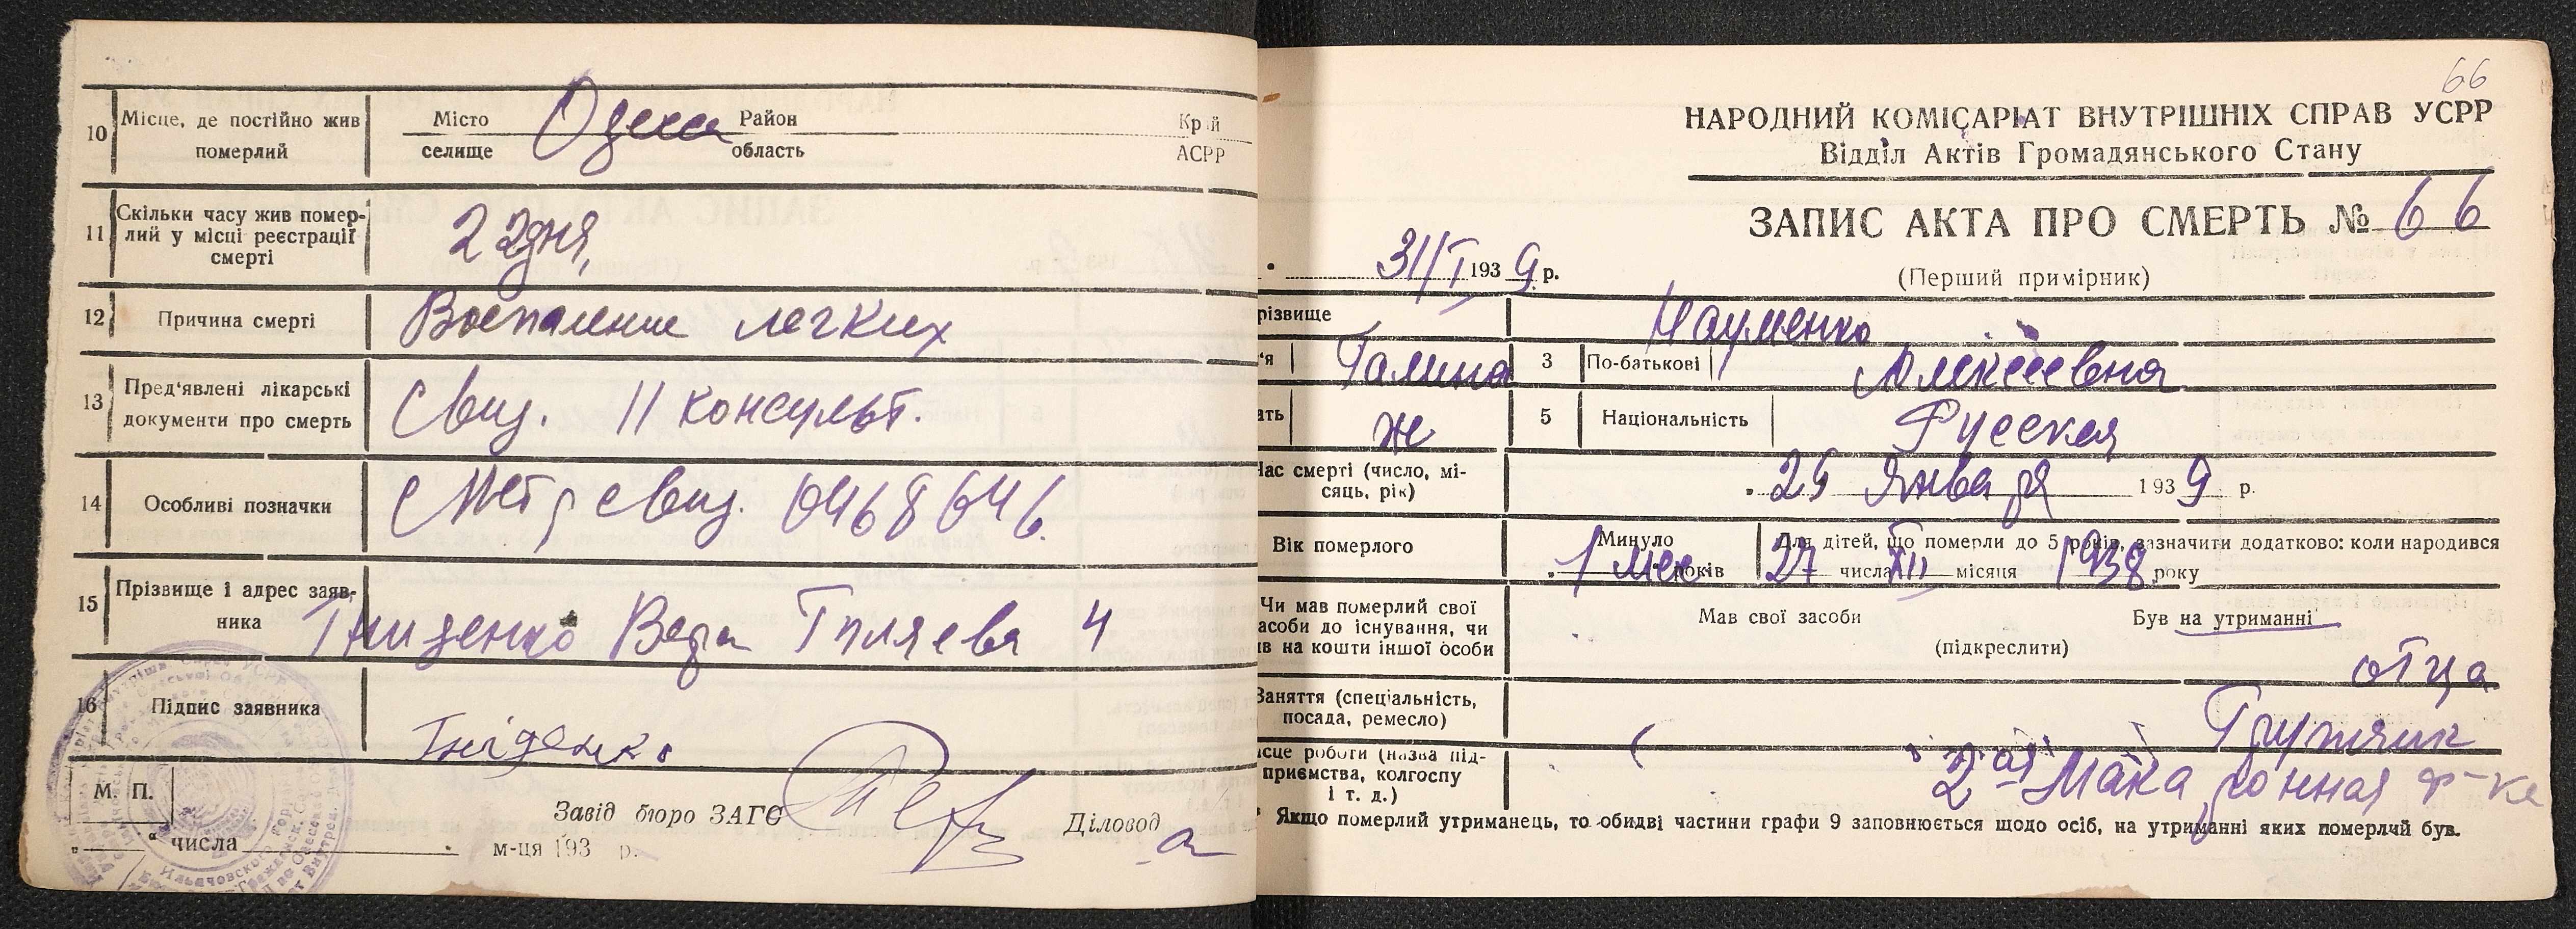 10 Місце, де постійно жив померлий
Місто селище Одесса Район область Край АСРР
11 Скільки часу жив помер-
лий у місці реєстрації
смерті
22 дня,
12 Причина смерті Воспаление легких
13 Пред'явлені лікарські
документи про смерть
Свид. 11 консульт.
14 Особливі позначки Метр свид. 0468646.
15 Прізвище і адрес заяв-
ника
Вера 4
16 Підпис заявника
М. П.
Завід бюро ЗАГС Діловод
" " числа м-ця 193 р.
66
НАРОДНИЙ КОМІСАРІАТ ВНУТРІШНІХ СПРАВ УСРР
Відділ Актів Громадянського Стану
ЗАПИС АКТА ПРО СМЕРТЬ № 66
31/I 1939 р.
(Перший примірник)
різвище Науменко
'я Галина 3 По-батькові Алексеевна
ать ж 5 Національність Русская
Час смерті (число, мі-
сяць, рік)
29 Января 1939 р.
Вік померлого
Минуло 1 мес років
Для дітей, що померли до 5 років, зазначити додатково: коли народився
27 числа XII місяця 1938 року
Чи мав померлий свої
асоби до існування, чи
ів на кошти іншої особи
Мав свої засоби Був на утриманні
(підкреслити)
отца
Заняття (спеціальність,
посада, ремесло)
Грузчик
ісце роботи (назва під-
приємства, колгоспу
і т. д.)
2-ая Макаронная ф-ка
* Якщо померлий утриманець, то обидві частини графи 9 заповнюється щодо осіб, на утриманні яких померлий був.